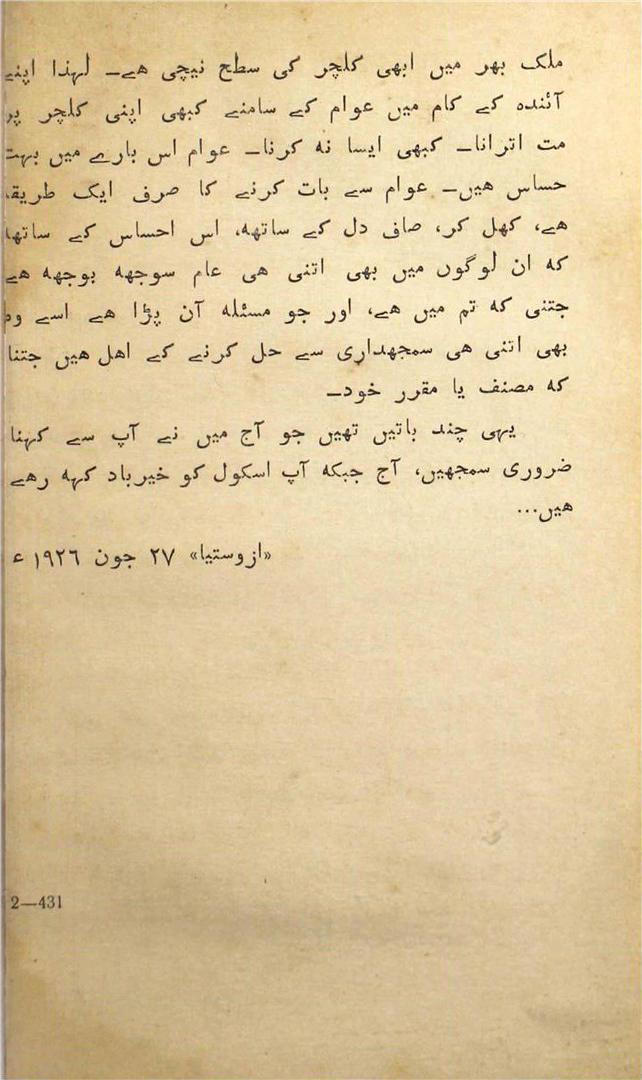 ملک بھر میں ابھی کلچر کی سطح نیچی ھے۔ لہذا اپنے
آئندہ کے کام میں عوام کے سامنے کبھی اپنی کلچر پر
مت اترانا۔ کبھی ایسا نہ کرنا۔ عوام اس بارے میں بہت
حساس ھیں۔ عوام سے بات کرنے کا صرف ایک طریقہ
ھے، کھل کر، صاف دل کے ساتھہ، اس احساس کے ساتھہ
کہ ان لوگوں میں بھی اتنی ھی عام سوجھہ بوجھہ ھے
جتنی کہ تم میں ھے، اور جو مسئلہ آن پڑا ھے اسے وہ
بھی اتنی ھی سمجھداری سے حل کرنے کے اھل ھیں جتنا
کہ مصنف یا مقرر خود۔
یہی چند باتیں تھیں جو آج میں نے آپ سے کہنا
ضروری سمجھیں، آج جبکہ آپ اسکول کو خیرباد کہہ رھے
ھیں...
«ازوستیا» ۲۷ جون ۱۹۲۶ ء
2—431